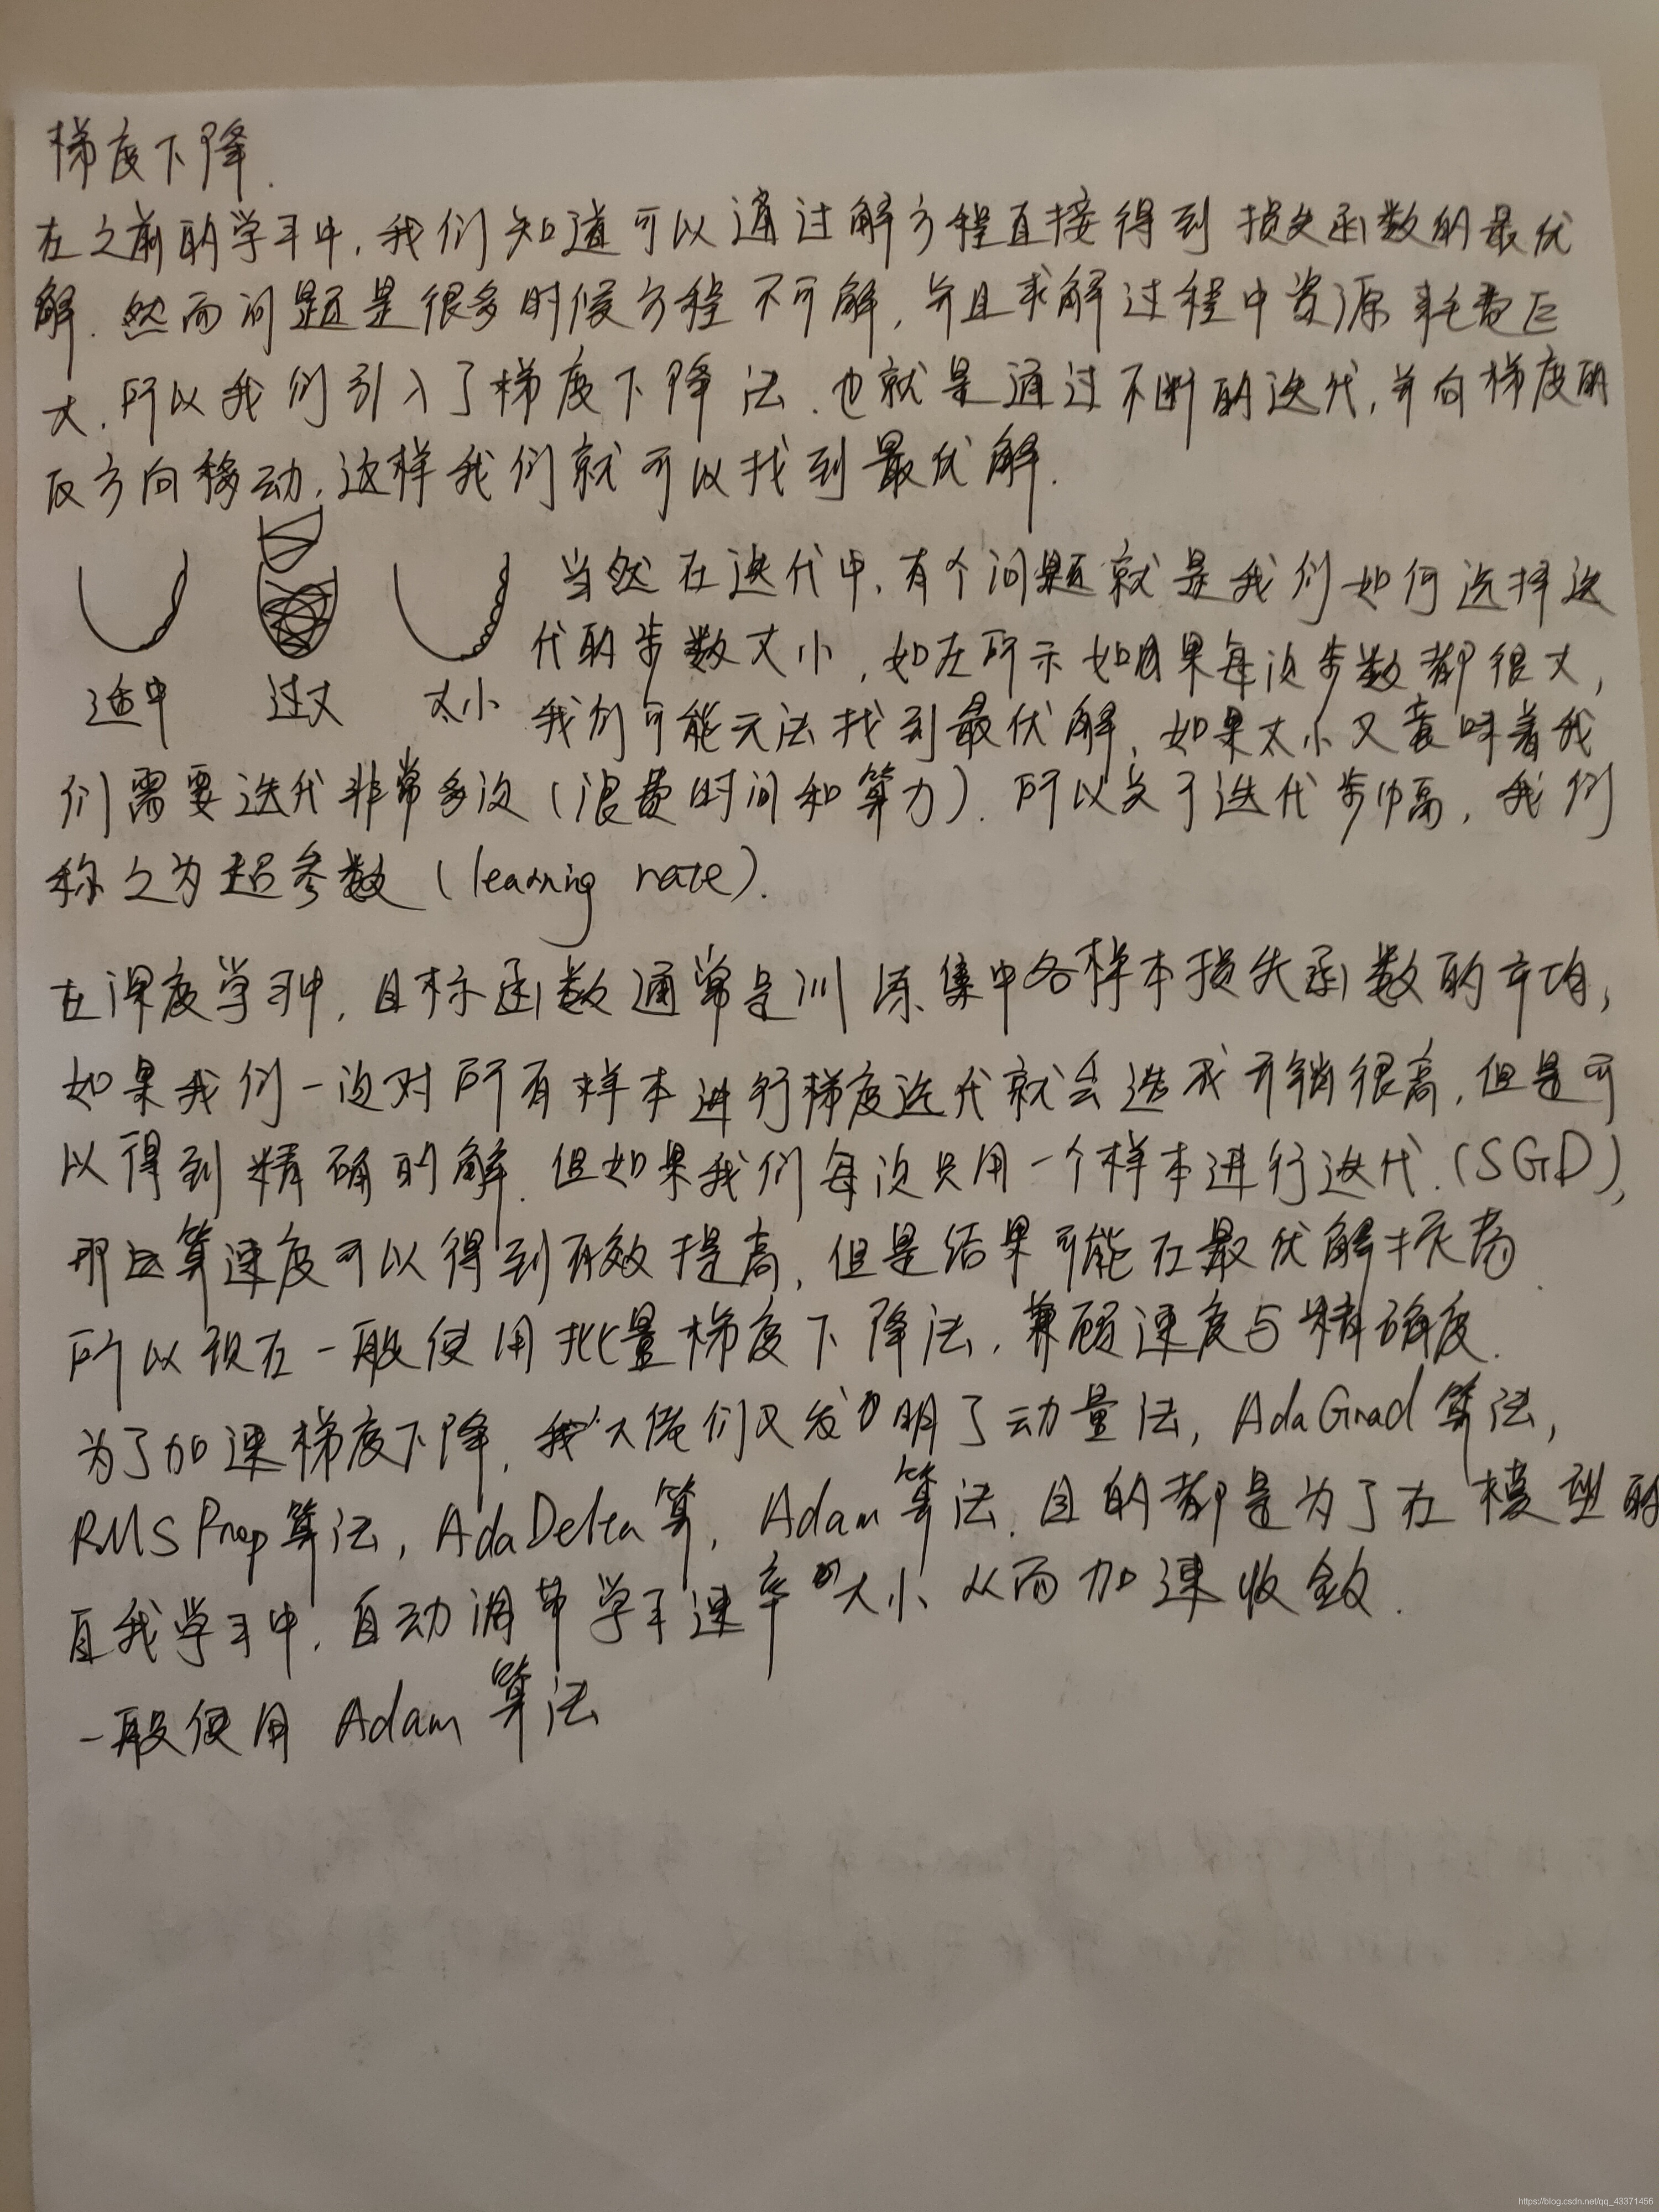 梯度下降.
在之前的学习中,我们知道可以通过解方程直接得到损失函数的最优
解.然而问题是很多时候方程不可解,并且求解过程中资源耗费巨
大.所以我们引入了梯度下降法.也就是通过不断的迭代,并向梯度的
反方向移动,这样我们就可以找到最优解.
当然在迭代中,有个问题就是我们如何选择迭
代的步数大小,如左所示如果每次步数都很大,
适中 过大 太小
我们可能无法找到最优解,如果太小又意味着我
们需要迭代非常多次(浪费时间和算力).所以关于迭代步幅高,我们
称之为超参数(learning rate).
在深度学习中,目标函数通常是训练集中各样本损失函数的平均,
如果我们一次对所有样本进行梯度迭代就会造成开销很高,但是可
以得到精确的解.但如果我们每次只用一个样本进行迭代.(SGD),
那运算速度可以得到有效提高,但是结果可能在最优解振荡.
所以现在一般使用批量梯度下降法,兼顾速度与精确度.
为了加速梯度下降,大佬们又发明了动量法,AdaGrad算法,
RMSProp算法,AdaDelta算,Adam算法.目的都是为了在模型的
自我学习中,自动调节学习速率的大小从而加速收敛.
一般使用 Adam算法
https://blog.csdn.net/qq_43371456